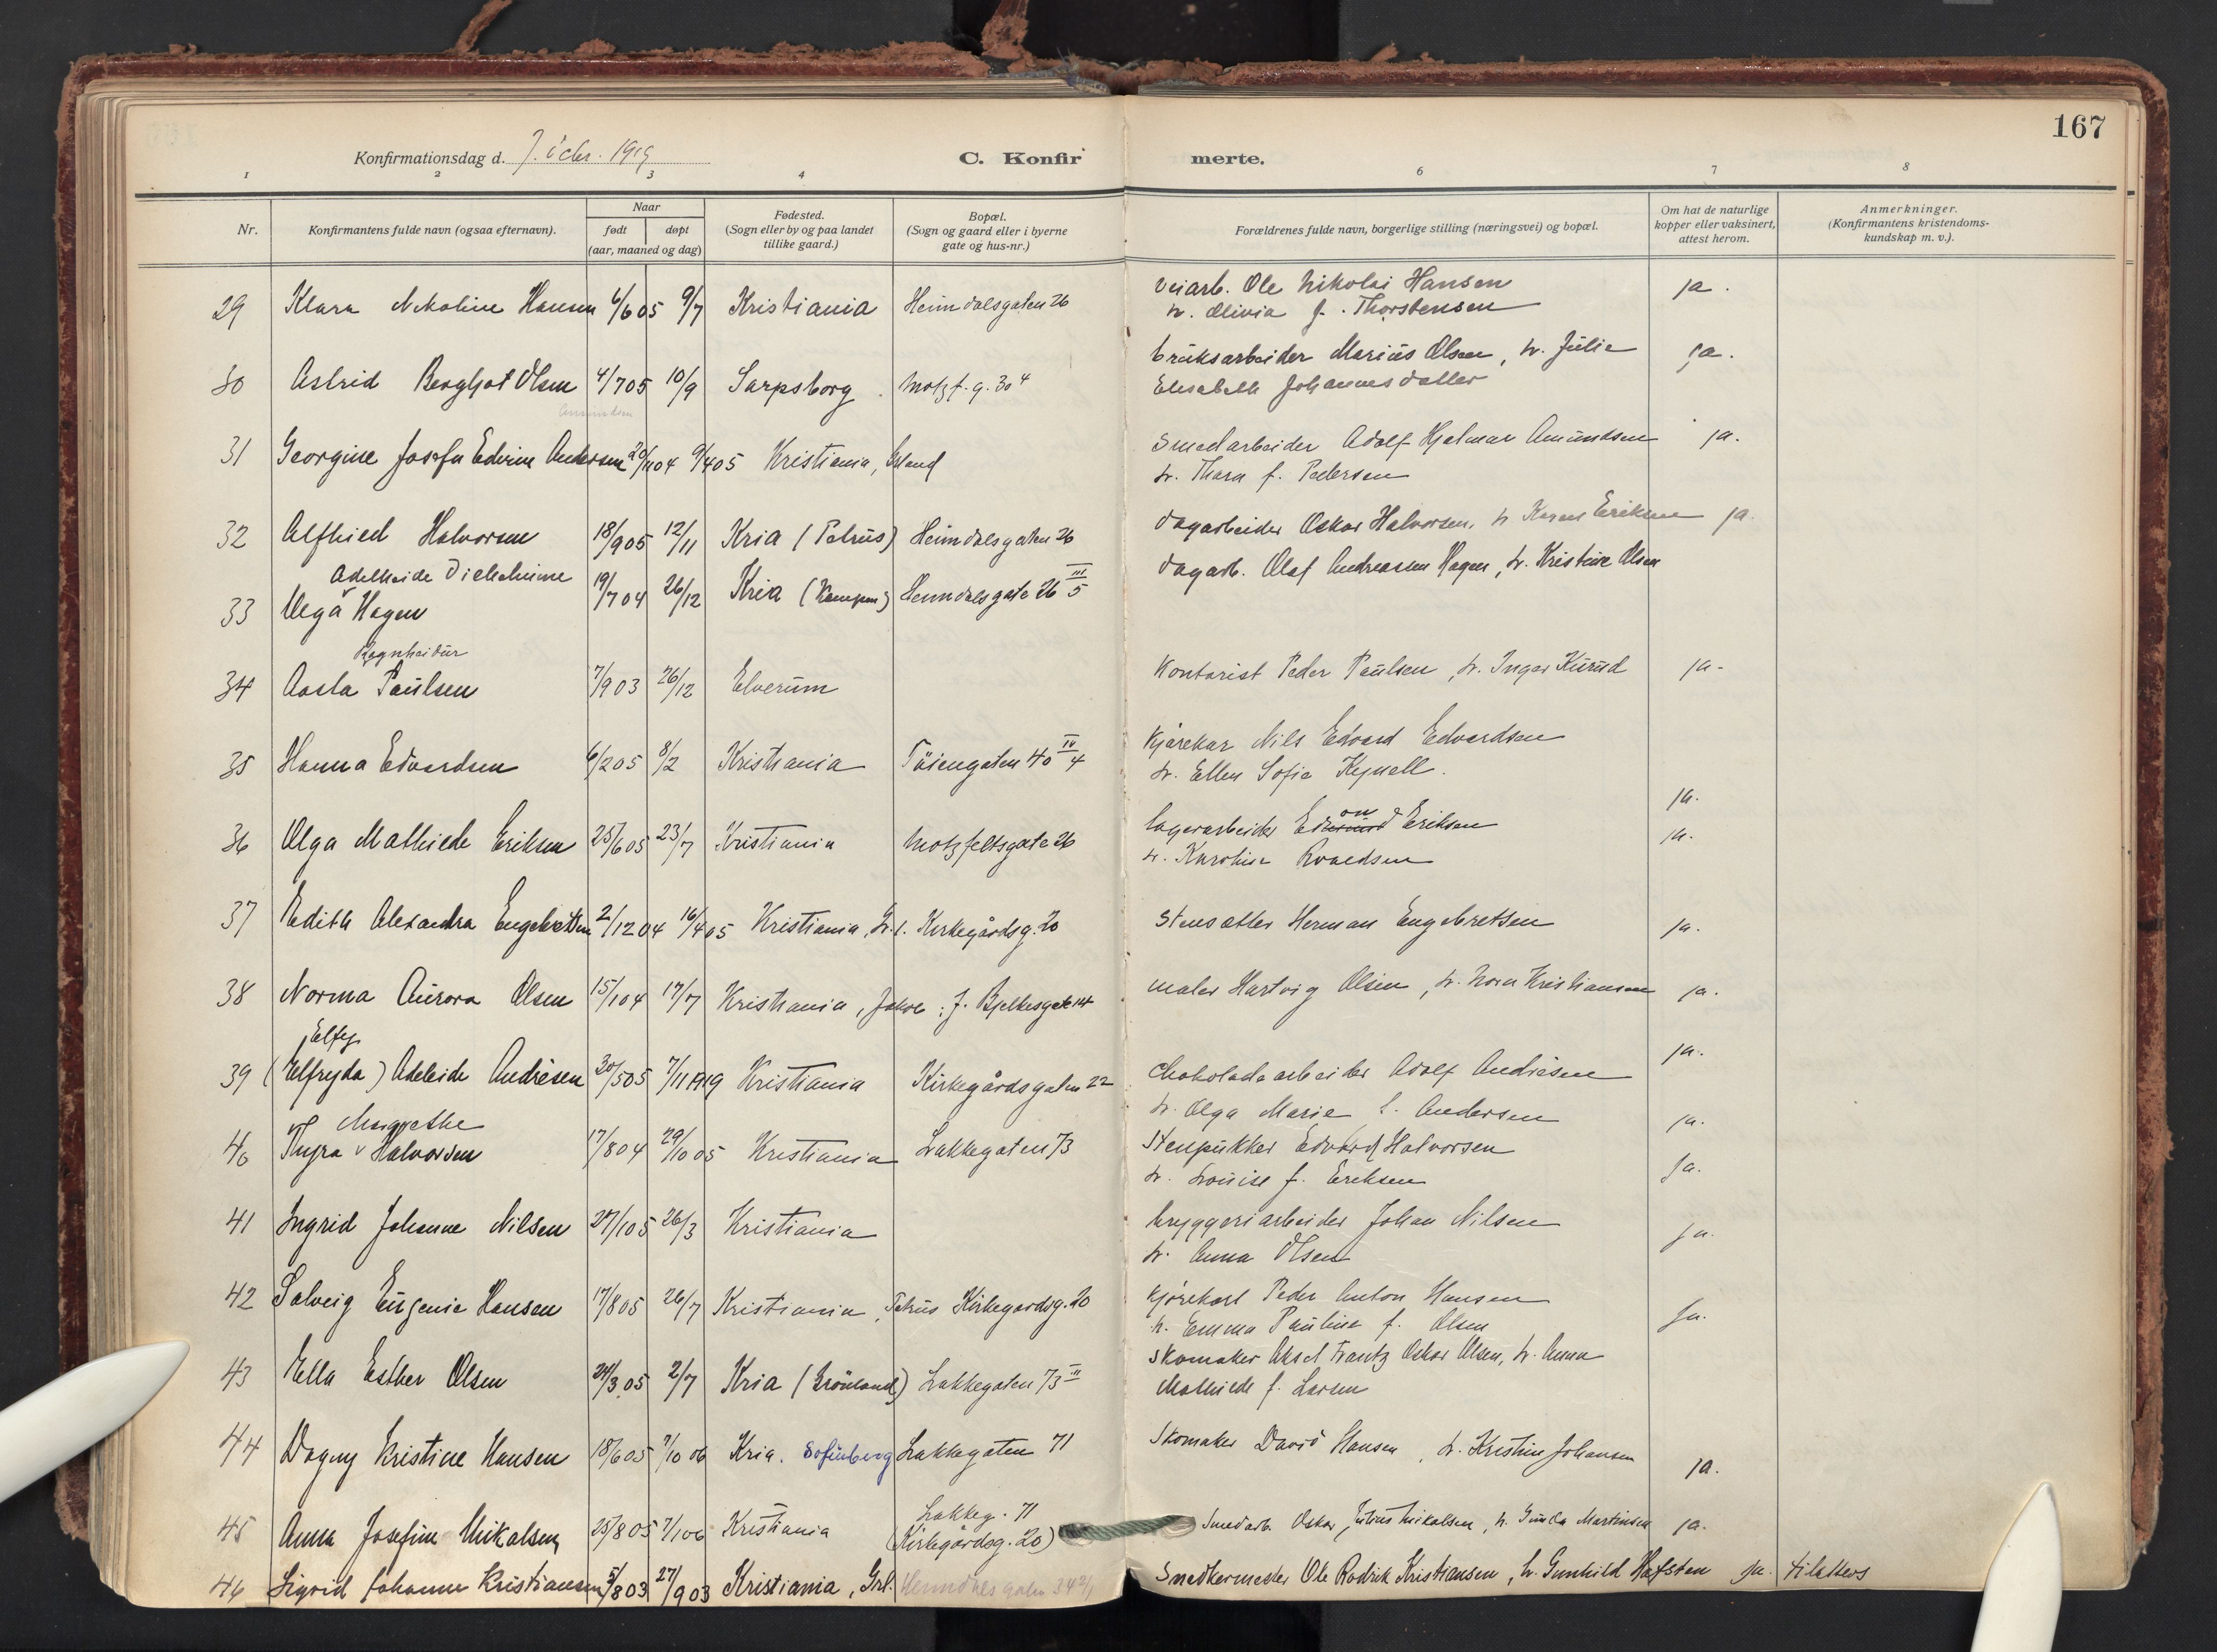 167
Konfirmationsdag d. 7. 1919
C. Konfirmerte.
1 2 3 4 6 7 8
Nr.
Konfirmantens fulde navn (ogsaa efternavn).
Naar
født døpt
(aar, maaned og dag)
Fødested.
(Sogn eller by og paa landet
tillike gaard.)
Bopæl.
(Sogn og gaard eller i byerne
gate og hus-nr.)
Forældrenes fulde navn, borgerlige stilling (næringsvei) og bopæl.
Om hat de naturlige
kopper eller vaksinert,
attest herom.
Anmerkninger.
(Konfirmantens kristendoms-
kundskap m. v.).
29 Klara Nikoline Hansen 6/6 05 9/7 Kristiania Heimdalsgaten 26 veiarb. Ole Nikolai Hansen ja.
h. Olivia f. Thorstensen
30 Astrid Bergljot Olsen 4/7 05 10/9 Sarpsborg Motzf.g. 30 4 bruksarbeider Marius Olsen, h. Julie ja.
Elisabeth Johannesdatter
Amundsen
31 Georgine Josefa Edvine Andersen 20/11 04 9/4 05 Kristiania, Grland Smedarbeider Adolf Hjalmar Amundsen ja.
h. Thora f. Pedersen
32 Alfhild Halvorsen 18/9 05 12/11 Kria (Petrus) Heimdalsgaten 26 dagarbeider Oskar Halvorsen, h. Karen Eriksen ja.
Adelheide
33 Olga Hagen 19/7 04 26/12 Kria (Kampen) Heimdalsgate 26 III 5 dagarb. Olaf Andreassen Hagen, h. Kristine Olsen
Ragnheidur
34 Aasta Paulsen 7/9 03 26/12 Elverum Kontorist Peder Paulsen, h. Inger Kurud ja.
35 Hanna Edvardsen 6/2 05 8/2 Kristiania Töiengaten 40 IV 4 Kjørekar Nils Edvard Edvardsen
h. Ellen Sofie Kjnell.
ja.
36 Olga Mathilde Eriksen 25/6 05 23/7 Kristiania Motzfeltsgate 26 lagerarbeider Eriksen ja.
h. Karoline Roaldsen
37 Edith Alexandra Engebretsen 2/12 04 16/4 05 Kristiania, Gr.l. Kirkegårdsg. 20 Stensætter Herman Engebretsen ja.
38 Norma Aurora Olsen 15/1 04 17/7 Kristiania, Jakob. J. Bjelkesgate 14 maler Hartvig Olsen, h. Nora Kristiansen ja.
Elfy
39 (Elfryda) Adeleide Andrèsen 30/5 05 7/11 1919 Kristiania Kirkegårdsgaten 22 Chokoladearbeider Adolf Andrèsen ja.
h. Olga Marie f. Andersen
Margrethe
40 Thyra Halvorsen 17/8 04 29/10 05 Kristiania Lakkegaten 73 Stenpukker Edvard Halvorsen ja.
h. Louise f. Eriksen ja.
41 Ingrid Johanne Nilsen 27/1 05 26/3 Kristiania bryggeriarbeider Johan Nilsen ja.
h. Anna Olsen
42 Solveig Eugenie Hansen 17/8 05 26/7 Kristiania, Petrus Kirkegårdsg. 20 Kjørekarl Peder Anton Hansen ja.
h. Emma Pauline f. Olsen
43 Ella Esther Olsen 24/3 05 2/7 Kria (Grönland) Lakkegaten 73 II Skomaker Aksel Frantz Oskar Olsen, h. Anna
Mathilde f. Larsen
44 Dagny Kristine Hansen 18/6 05 7/10 06 Kria. Sofienberg Lakkegaten 71 Skomaker David Hansen, h. Kristine Johansen ja.
45 Anna Josefine Mikalsen 25/8 05 7/1 06 Kristiania Lakkeg. 71
(Kirkegårdsg. 20) Smedarb. Oskar Julius Mikalsen, h. Gunda Martinsen ja.
46 Sigrid Johanne Kristiansen 5/8 03 27/9 03 Kristiania, Grl. Heimdalsgaten 34 Snedkermester Ole Rodrik Kristiansen, h. Gunhild Hafsten ja.